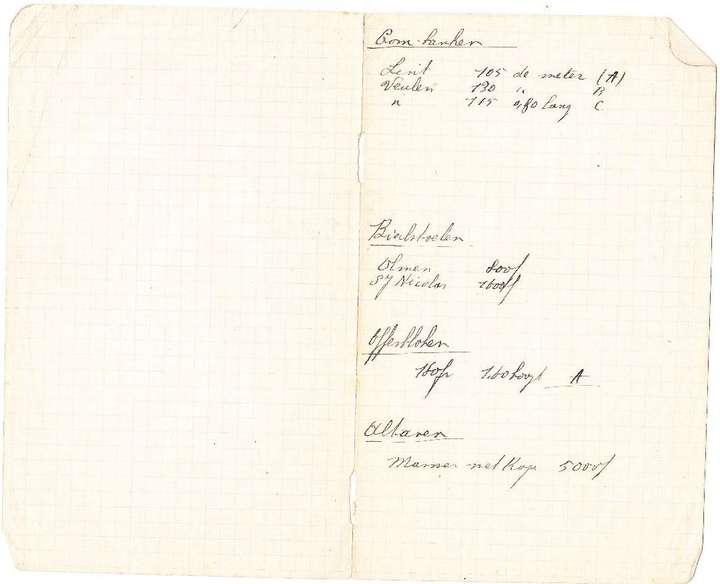 Com-banken
Lint 105 de meter (A)
Veulen 130 " B
" 115 2,80 lang C
Bielstoelen
Olmen 800f
St Nicolas 1600f
Offerbloken
160fr 1.60 hoogt A
Altaren
5000f